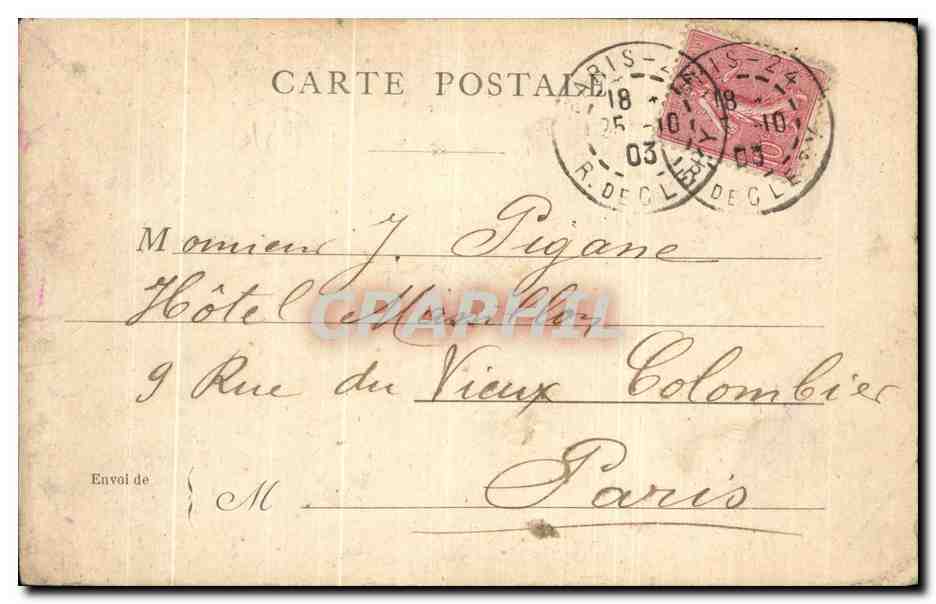 CARTE POSTALE
PARIS-24 18 25 -10 03 R. DE CLERY
PARIS-24 18 -10 03 R. DE CLERY
10
Monsieur J. Pigane
Hôtel
9 Rue du Vieux Colombier
Paris
Envoi de
M
CPAPHIL